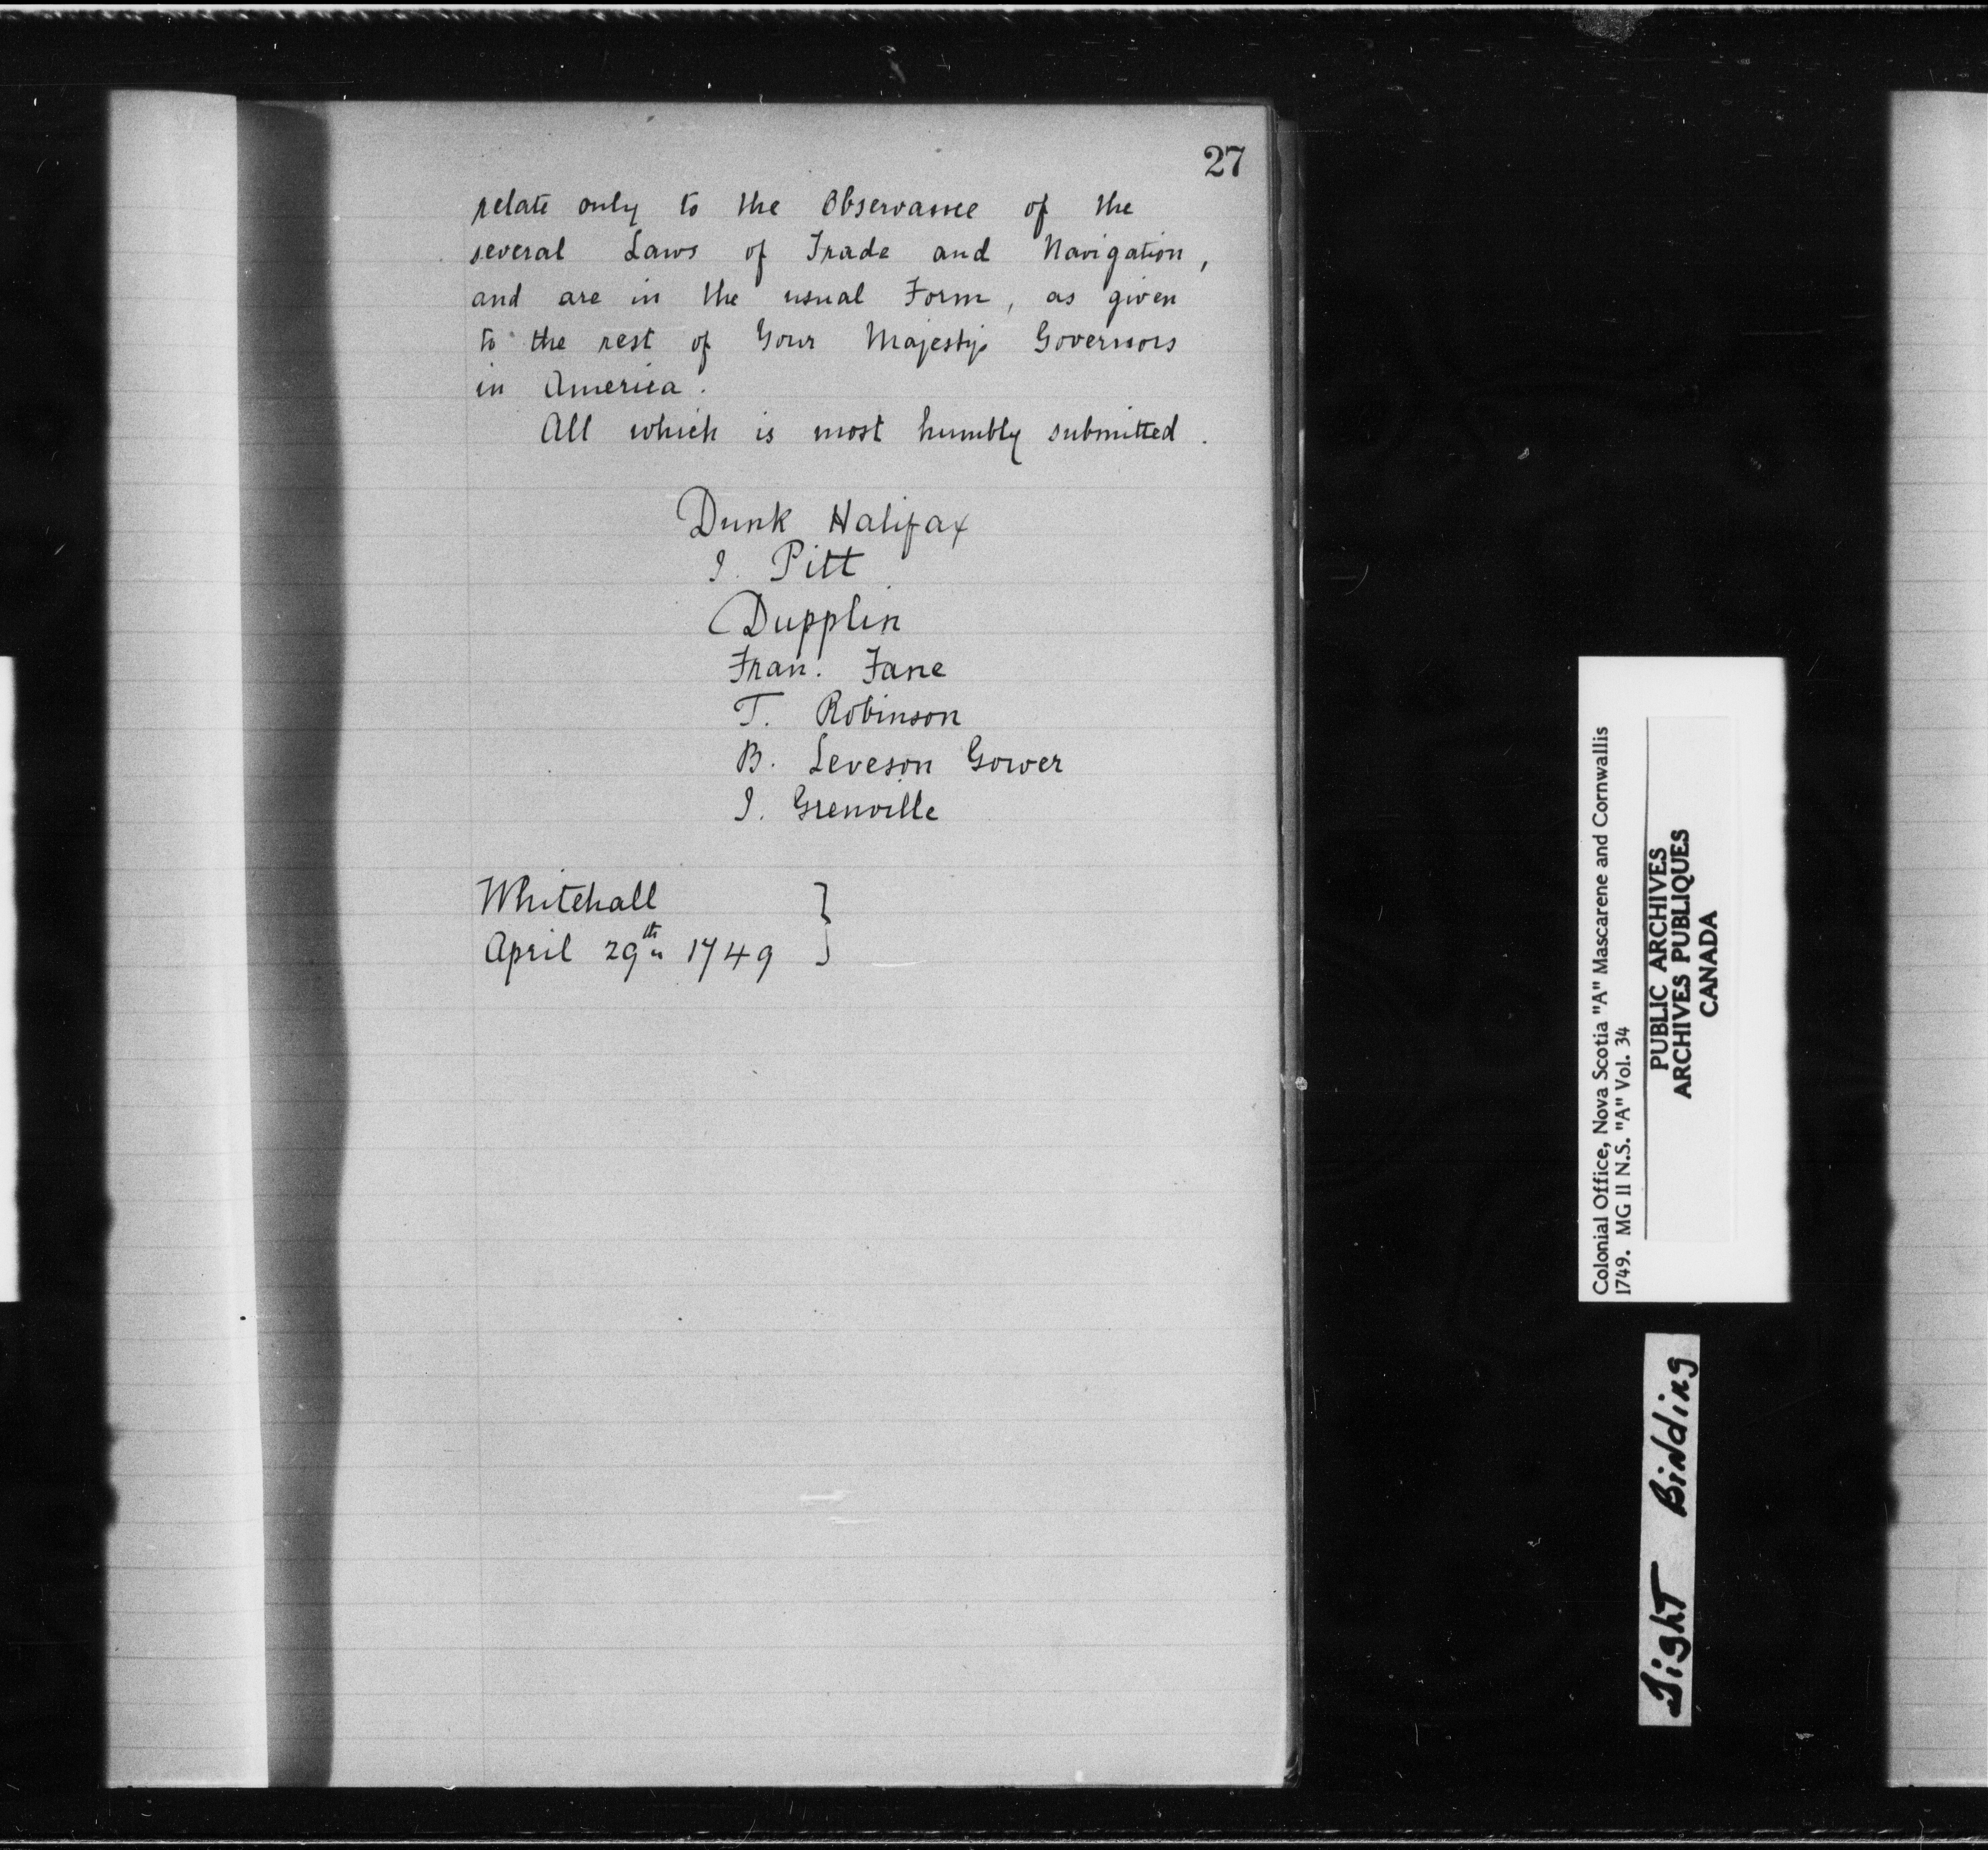 27
relate only to the Observance of the
several Laws of Trade and Navigation,
and are in the usual Form, as given
to the rest of Your Majestys Governors
in America.
All which is most humbly submitted.
Dunk Halifax
J. Pitt
Dupplin
Fran. Fane
T. Robinson
B. Leveson Gower
J. Grenville
Whitehall
April 29th 1749
Colonial Office, Nova Scotia "A" Mascarene and Cornwallis
1749. MG 11 N.S. "A" Vol. 34
PUBLIC ARCHIVES
ARCHIVES PUBLIQUES
CANADA
Tight Binding